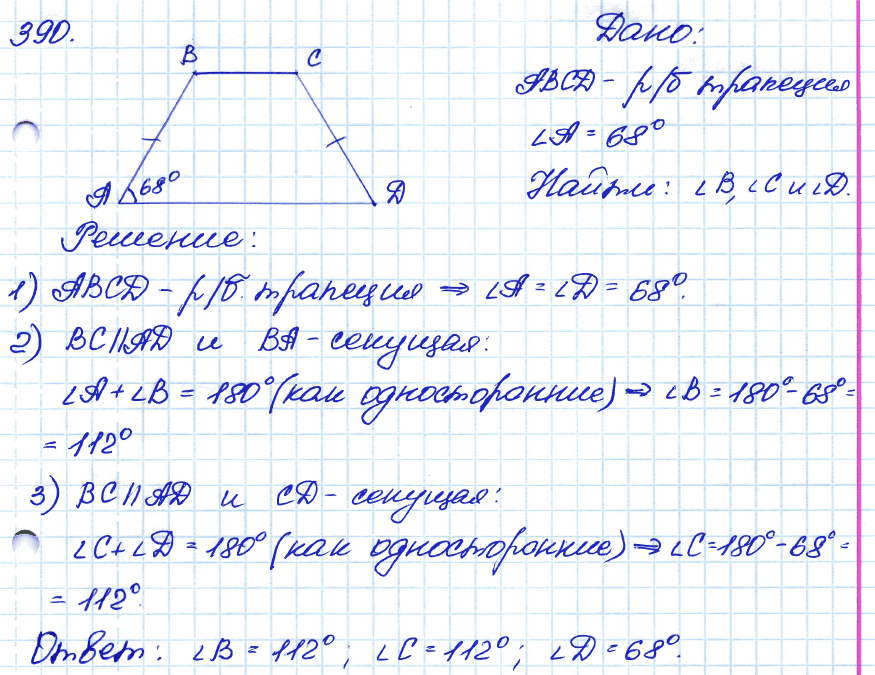 390.
B C
A 68° D
Дано:
ABCD - р/б трапеция
∠A = 68°
Найти: ∠B, ∠C и ∠D.
Решение:
1) ABCD - р/б. трапеция ⇒ ∠A = ∠D = 68°.
2) BC||AD и BA - секущая:
∠A + ∠B = 180° (как односторонние) ⇒ ∠B = 180° - 68° =
= 112°
3) BC||AD и CD - секущая:
∠C + ∠D = 180° (как односторонние) ⇒ ∠C = 180° - 68° =
= 112°.
Ответ: ∠B = 112°; ∠C = 112°; ∠D = 68°.